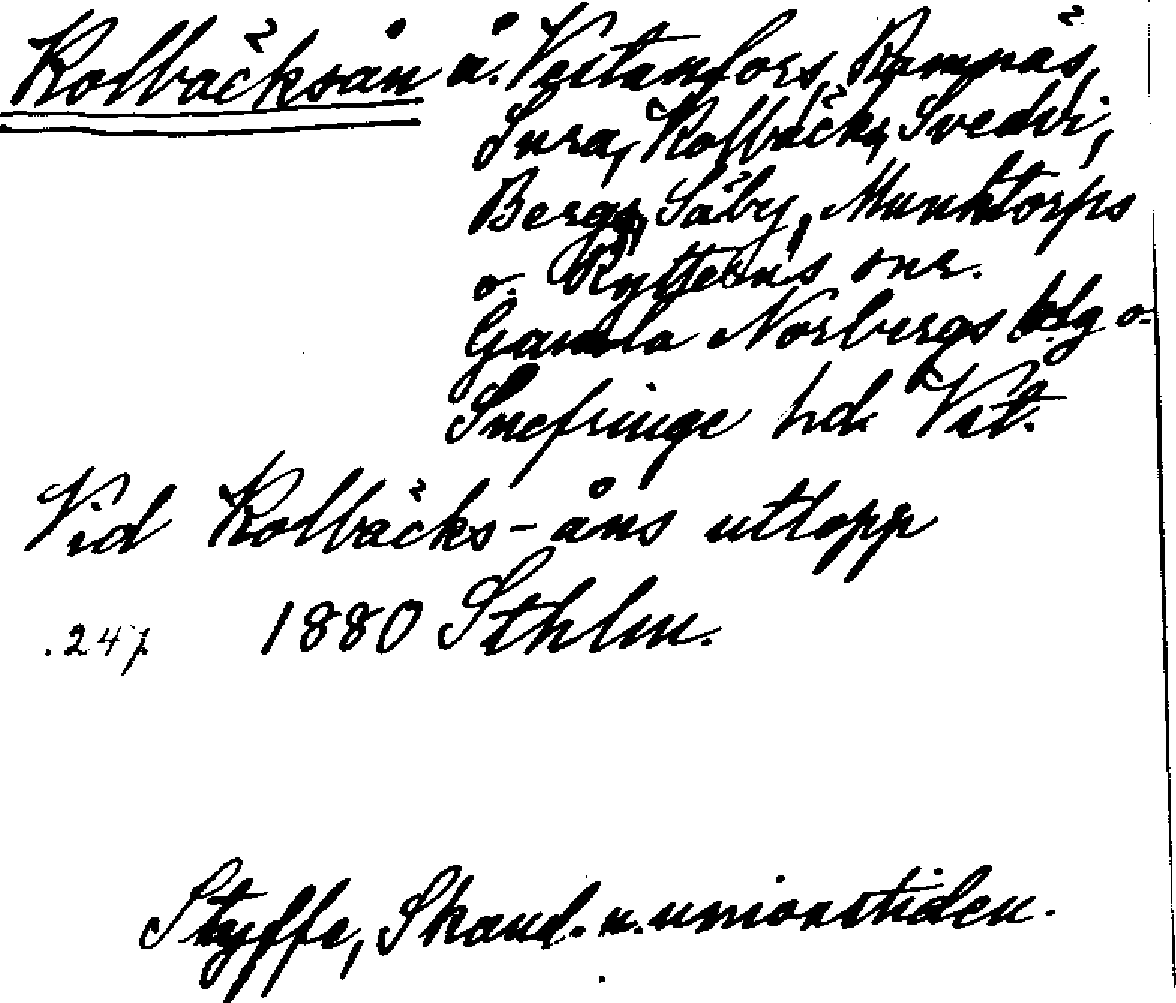 Kolbäcksån å. Vestanfors, Ramnäs,
Sura, Kolbäcks, Svedvi,
Bergs, Säby, Munktorps
o. Rytterns snr.
Gamla Norbergs blg o.
Snefringe hd. Vst.
Vid Kolbäcks-åns utlopp
.247. 1880 Sthlm.
Styffe, Skand. u. unionstiden.